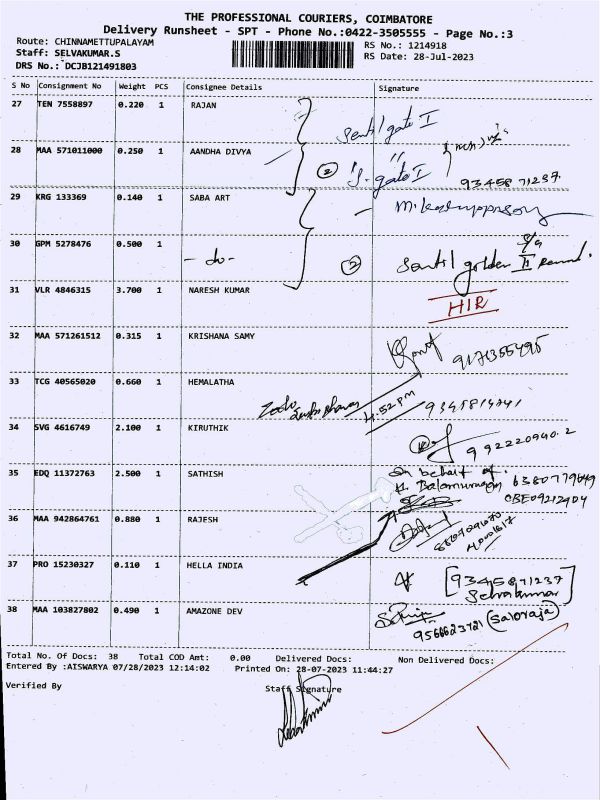 THE PROFESSIONAL COURIERS, COIMBATORE
Delivery Runsheet - SPT - Phone No.:0422-3505555 - Page No.:3
Route: CHINNAMETTUPALAYAM
RS No.: 1214918
Staff: SELVAKUMAR.S
RS Date: 28-Jul-2023
DRS No.: DCJB121491803
S No Consignment No Weight PCS Consignee Details Signature
27 TEN 7558897 0.220 1 RAJAN
Sentil gate I
28 MAA 571011000 0.250 1 AANDHA DIVYA
② "S. gate I
93458 71237
29 KRG 133369 0.140 1 SABA ART
30 GPM 5278476 0.500 1
- do -
② Sentil golden II
31 VLR 4846315 3.700 1 NARESH KUMAR
HIR
32 MAA 571261512 0.315 1 KRISHANA SAMY
33 TCG 40565020 0.660 1 HEMALATHA
4:52 PM
34 SVG 4616749 2.100 1 KIRUTHIK
992220940.2
35 EDQ 11372763 2.500 1 SATHISH
On behalf of.
Balamurugan 6380779649
36 MAA 942864761 0.880 1 RAJESH
37 PRO 15230327 0.110 1 HELLA INDIA
[93458 71237
Selvakumar]
38 MAA 103827802 0.490 1 AMAZONE DEV
9566623721 (Saloraja)
Total No. Of Docs: 38 Total COD Amt: 0.00 Delivered Docs: Non Delivered Docs:
Entered By :AISWARYA 07/28/2023 12:14:02 Printed On: 28-07-2023 11:44:27
Verified By Staff Signature